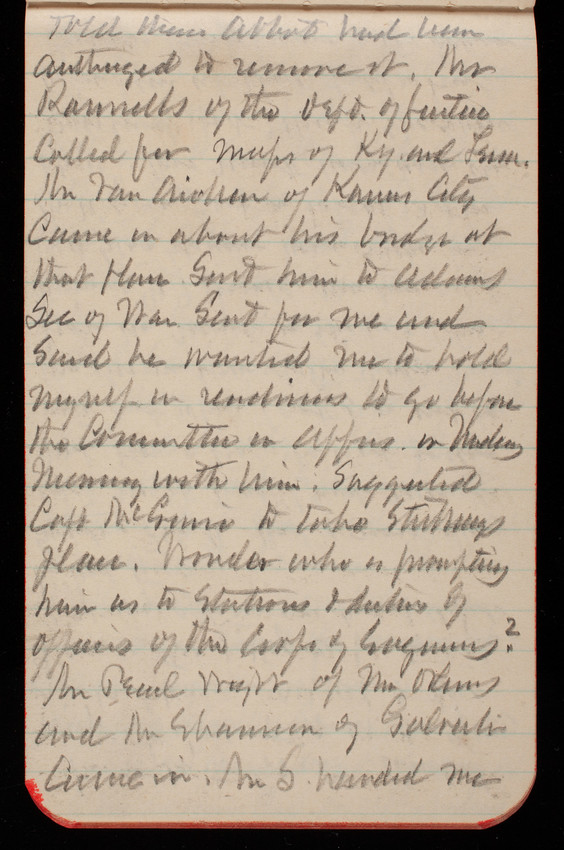 Told them Abbot had been
authorized to remove it. Mr
Rannells of the Dept. of Justice
Called for maps of Ky. and Tenn.
Mr Van of Kansas City
Came in about his bridge at
that place Sent him to Adams
Sec of War Sent for me and
Said he wanted me to hold
myself in readiness to go before
the Committee on Apprs. on
Morning with him. Suggested
Capt to take
place. Wonder who is prompting
him as to Stations & duties of
officers of the Corps of Engineers?
Mr Pearl Wight of New Orleans
and Mr of
Came in. Mr S handed me